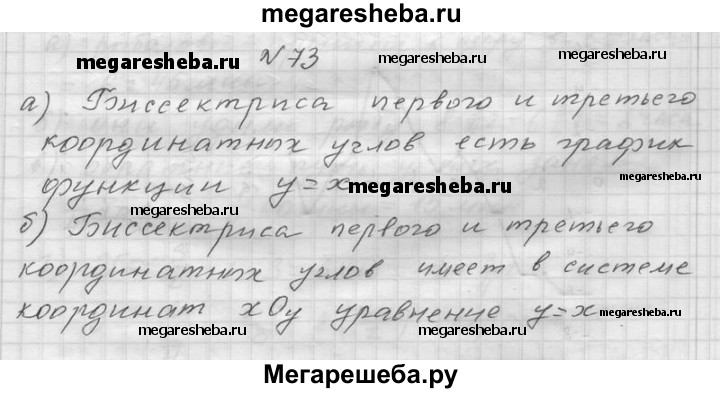 megaresheba.ru
megaresheba.ru №73 megaresheba.ru
а) Биссектриса первого и третьего
координатных углов есть график
функции y=x megaresheba.ru megaresheba.ru
megaresheba.ru
б) Биссектриса первого и третьего
координатных углов имеет в системе
координат xOy уравнение y=x
megaresheba.ru megaresheba.ru megaresheba.ru
Мегарешеба.ру